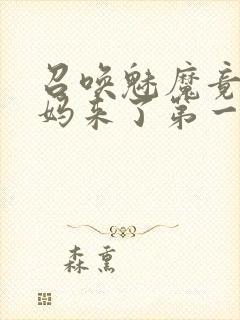 召唤魅魔竟
妈来了第一
森熏